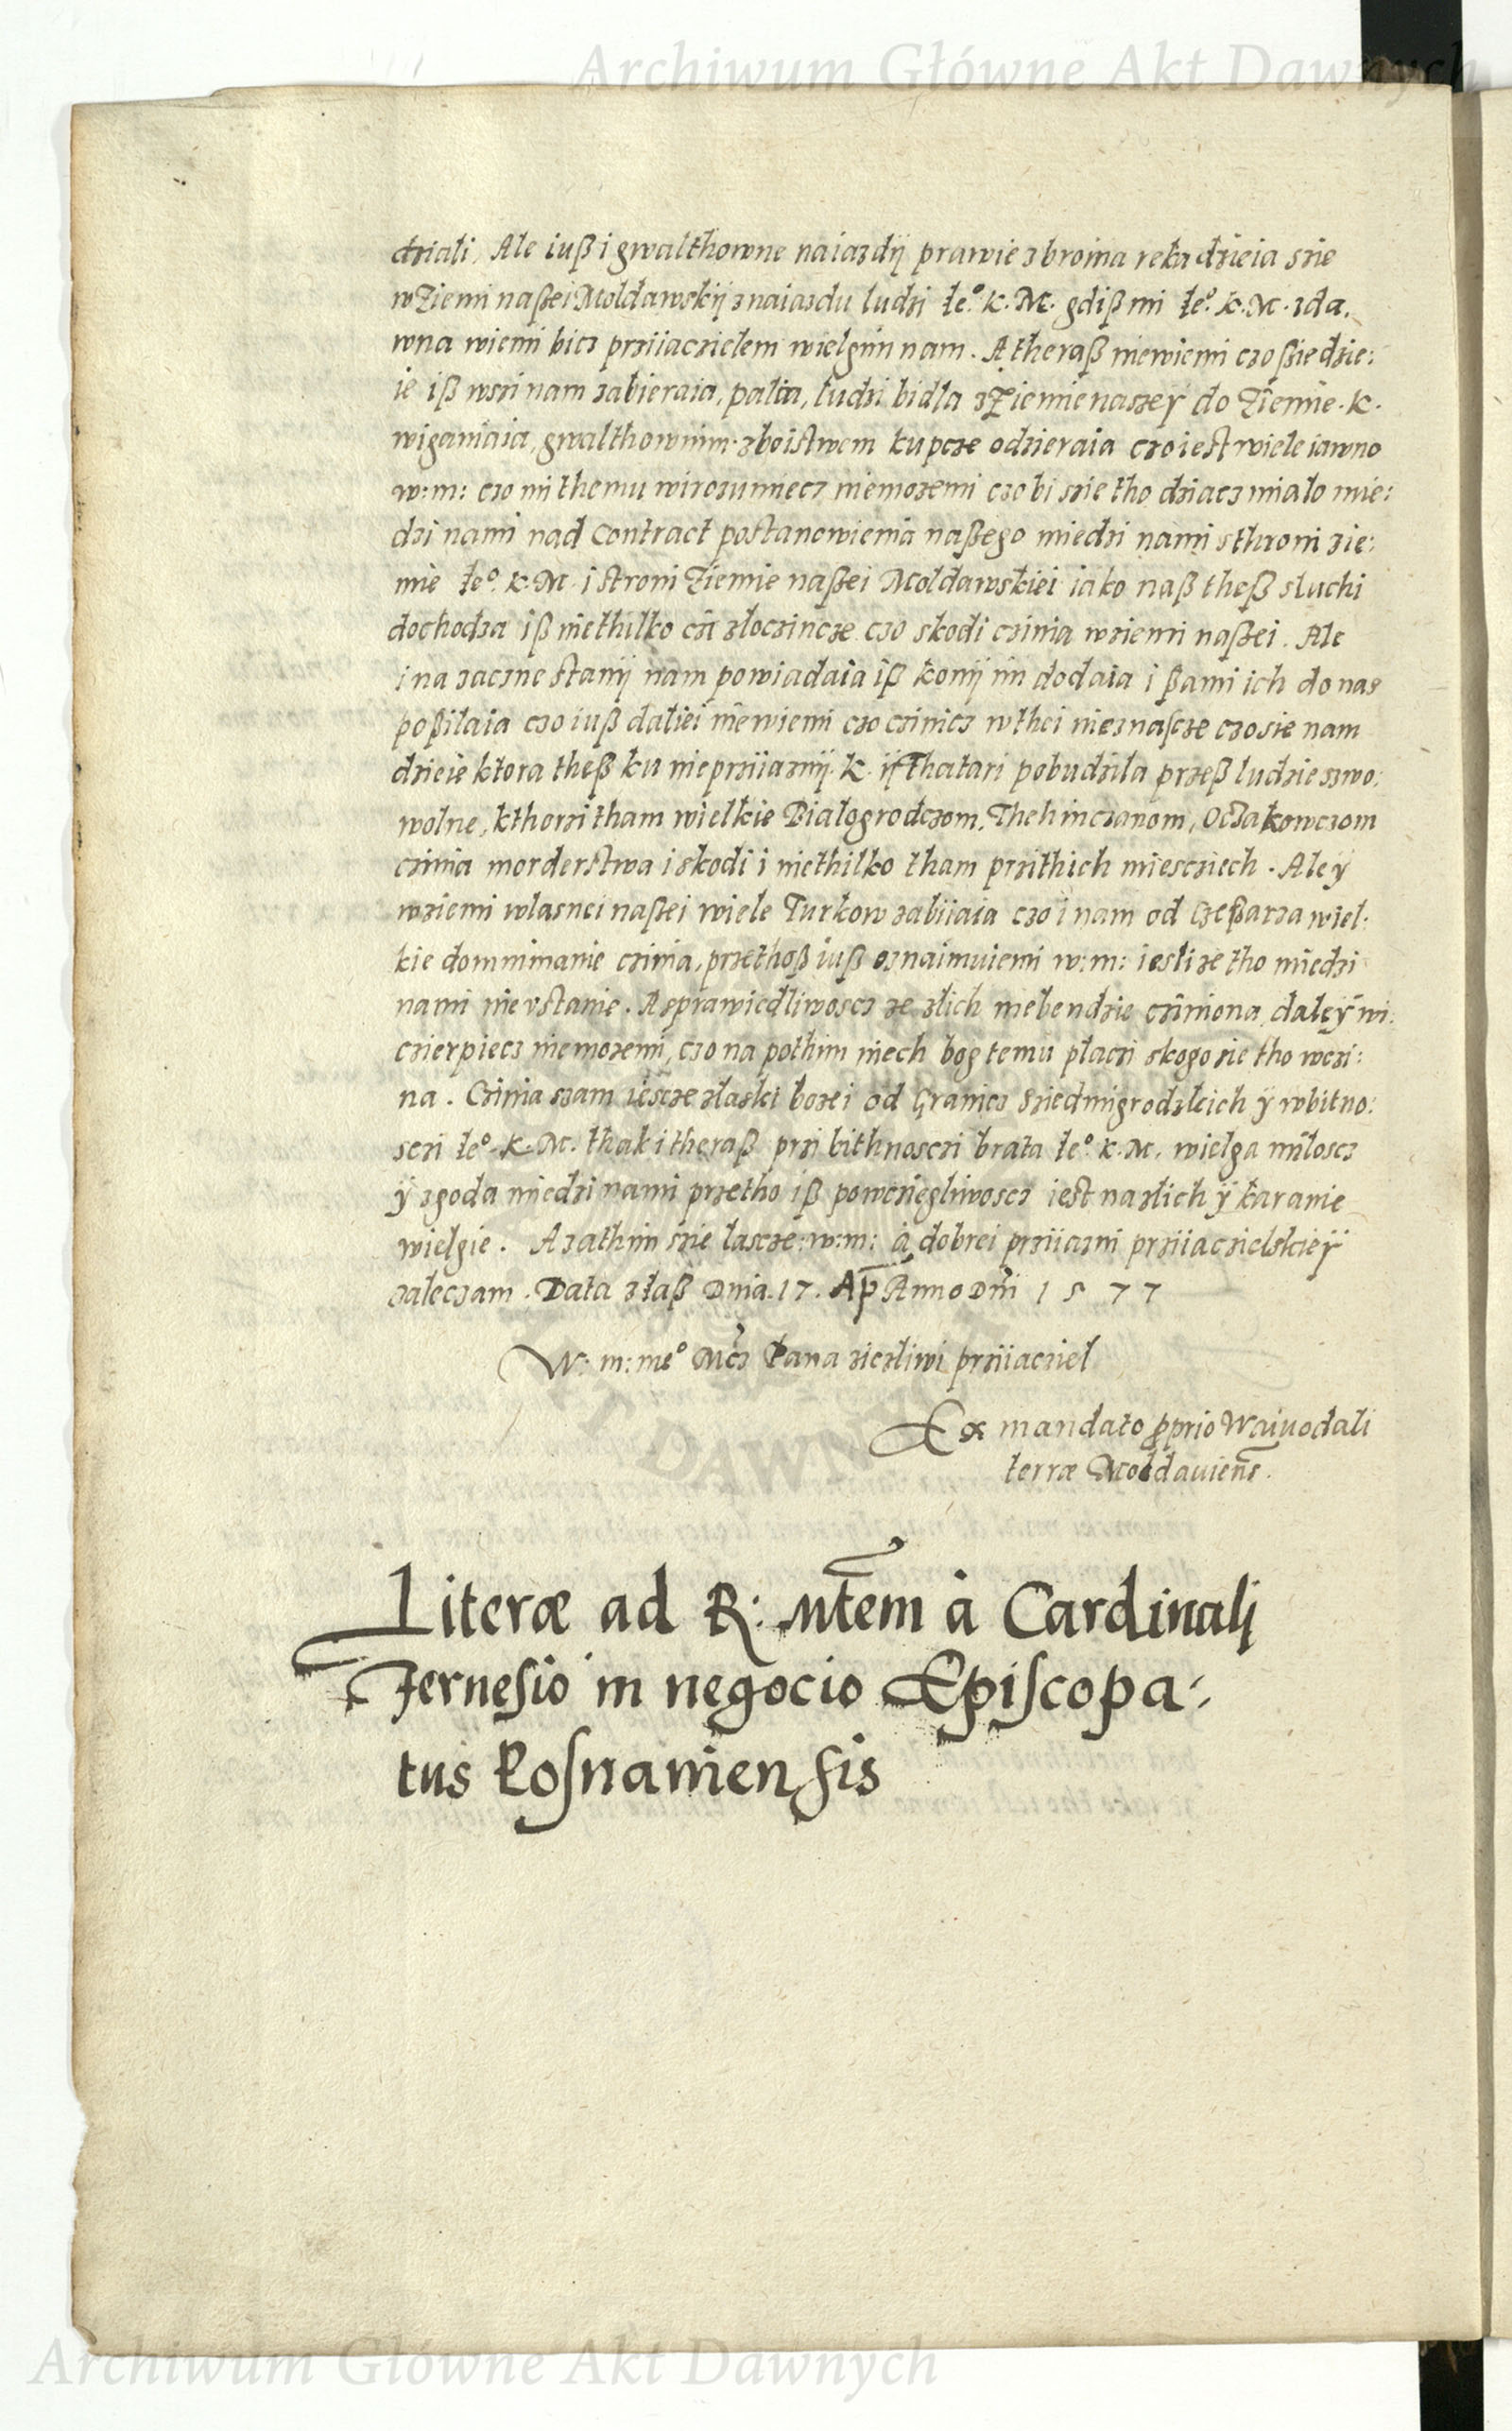 Archiwum Główne Akt Dawnych
dziali, Ale iuß i gwalthowne naiazdij prawie zbroina reka dzieia szie
w Ziemi naßei Moldawskij z naiazdu ludzi Ie° K. M. gdiß mi Ie° K. M. zda,
wna wiemi bicz prziiaczielem wielgim nam. A theraß niewiemi czo ßie dzie:
ie iß wszi nam zabieraia, palia, ludzi bidla z Ziemie naszeÿ do Ziemie. K.
wiganiaia, gwalthownim zboistwem kupcze odzieraia czo iest wiele iawno
w: m: czo mi themu wirozumiecz niemozemi czo bi szie tho dziacz mialo mie:
dzi nami nad Contract postanowienia naßego miedzi nami sthroni zie:
mie Ie° K. M. i stroni Ziemie naßei Moldawskiei iako naß theß sluchi
dochodza iß niethilko czi zloczincze czo skodi czinia w ziemi naßei. Ale
i na zaczne stanij nam powiadaia iß konij im dodaia i ßami ich do nas
poßilaia czo iuß daliei niewiemi czo czinicz w thei nieznascze czo sie nam
dzieie ktora theß ku nieprziiaznij. K. ij Thatari pobudzila przeß ludzie szwo:
wolne, kthorzi tham wielkie Bialogrodczom, Thehinczanom, Oczakowczom
czinia morderstwa i skodi i niethilko tham przithich miesciech. Ale ÿ
w ziemi wlasnei naßei wiele Turkow zabiiaia czo i nam od Czeßarza wiel:
kie domnimanie czinia, przethoß iuß oznaimuiemi w: m: iesli ze tho miedzi
nami nie vstanie. A sprawiedliwoscz ze zlich niebendzie cziniona daleÿ mi
czierpiecz niemozemi, czo na pothim niech bog temu placzi skogo sie tho wczi:
na. Czinia szam iescze z laski bozei od Granicz Sziedmigrodzkich ÿ w bitno:
sczi Ie° K. M. thak i theraß przi bithnosczi brata Ie° K. M. wielga miloscz
ÿ zgoda miedzi nami przetho iß powcziegliwoscz iest na zlich ÿ karanie
wielgie. A zathim szie lascze: w: m: á dobrei prziiazni prziiaczielskieÿ
zaleczam. Data z Iaß Dnia. 17. Ap̄ Anno Dn̄i 1577
W: m: me° Mcz Pana zicziliwi prziiaciel
Ex mandato ꝓprio Waiuodali
terræ Moldauien̄s.
Literæ ad R: Mtem à Cardinalj
Fernesio in negocio Episcopa-
tus Posnaniensis
Archiwum Główne Akt Dawnych